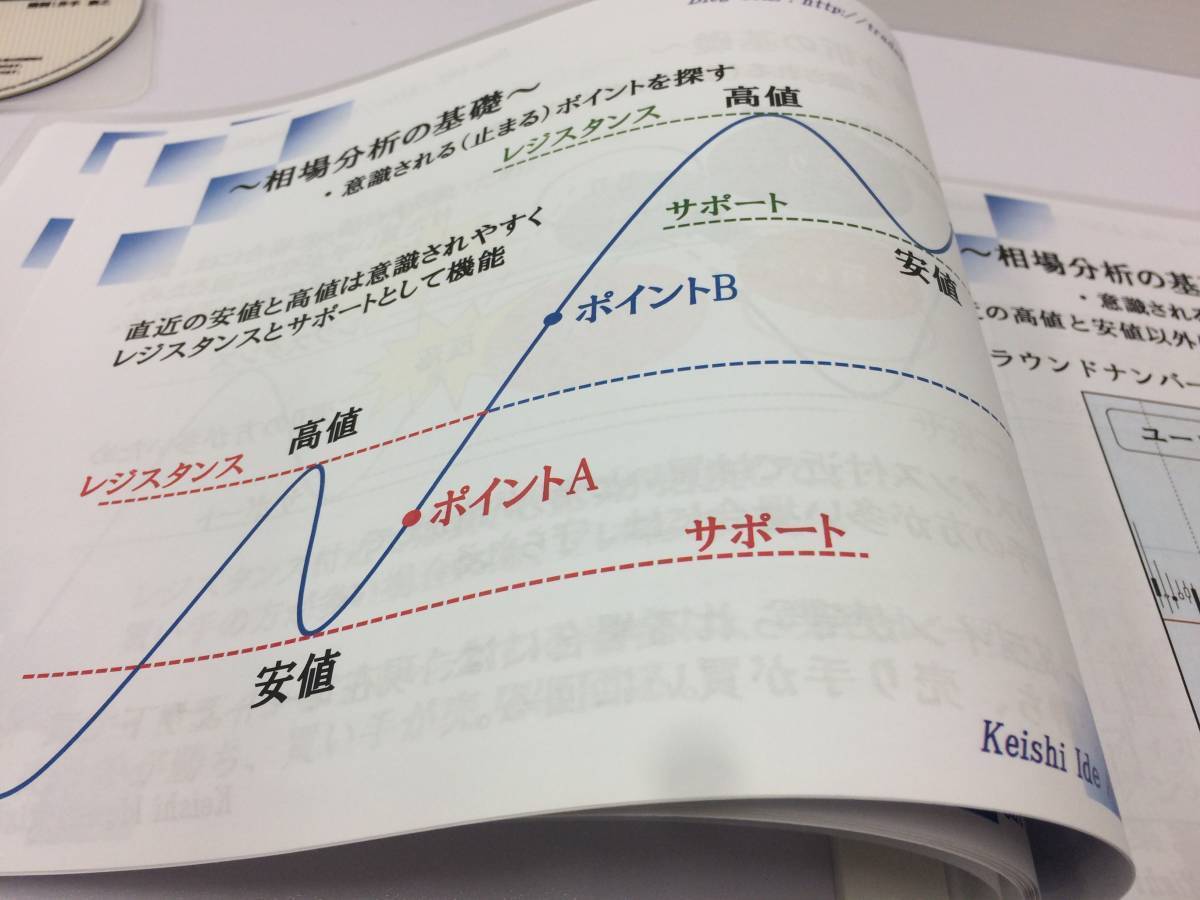 http://trad
～相場分析の基礎～
・意識される（止まる）ポイントを探す
高値
レジスタンス
サポート
安値
直近の安値と高値は意識されやすく
レジスタンスとサポートとして機能
ポイントB
高値
レジスタンス
ポイントA
サポート
安値
Keishi Ide
～相場分析の基
・意識され
の高値と安値以外
ラウンドナンバー
ユー